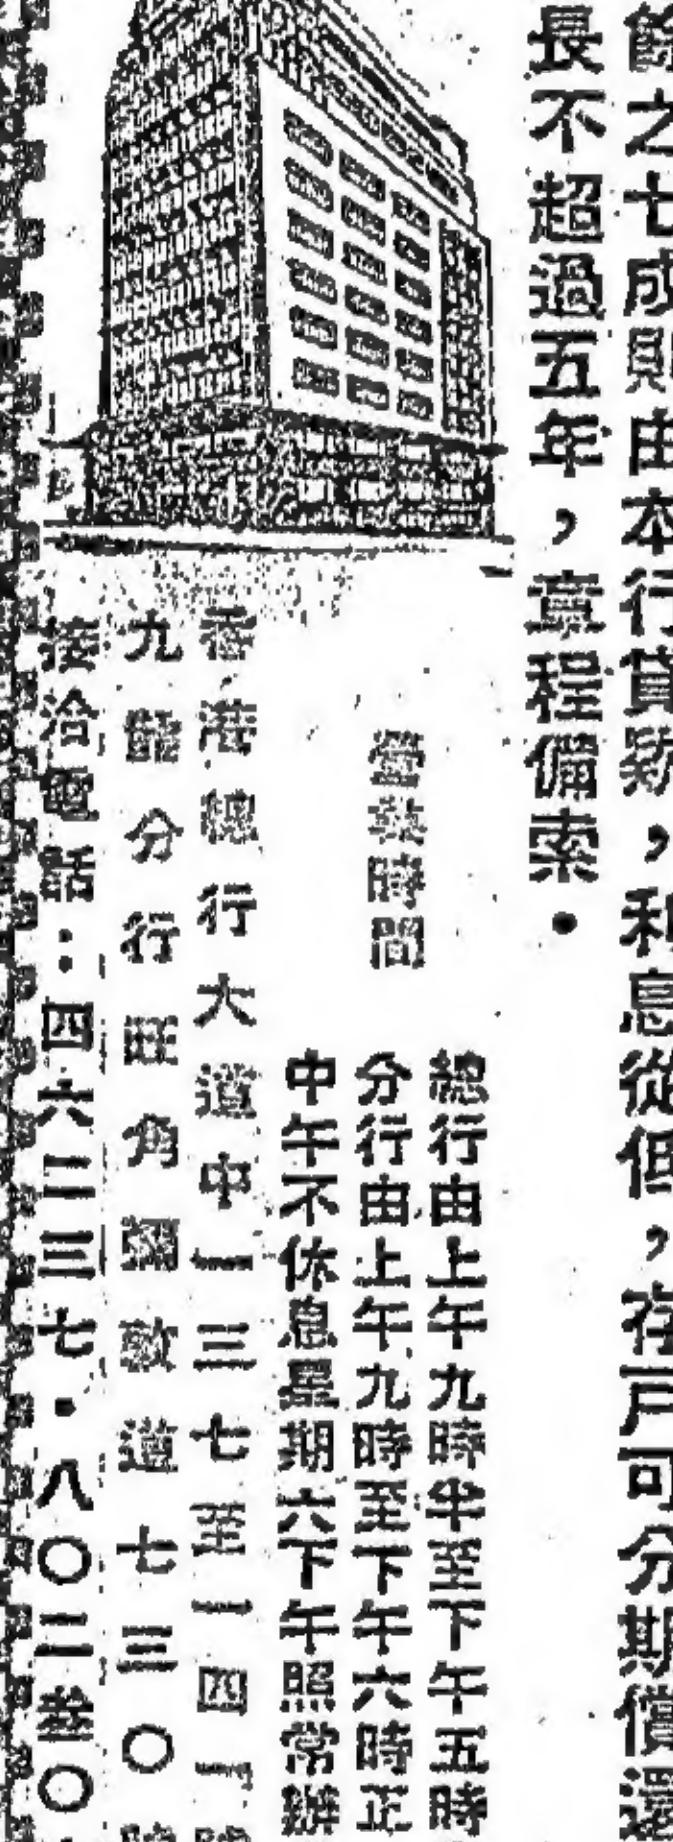 餘之七成則由本行貸款，利息從低，存戶可分期償還
長不超過五年，章程備索．
營業時間
總行由上午九時半至下午五時
分行由上午九時至下午六時正
中午不休息星期六下午照常辦
香港總行大道中一三七至一四一號
九龍分行旺角彌敦道七三〇號
接洽電話：四六二三七．八〇二叁〇